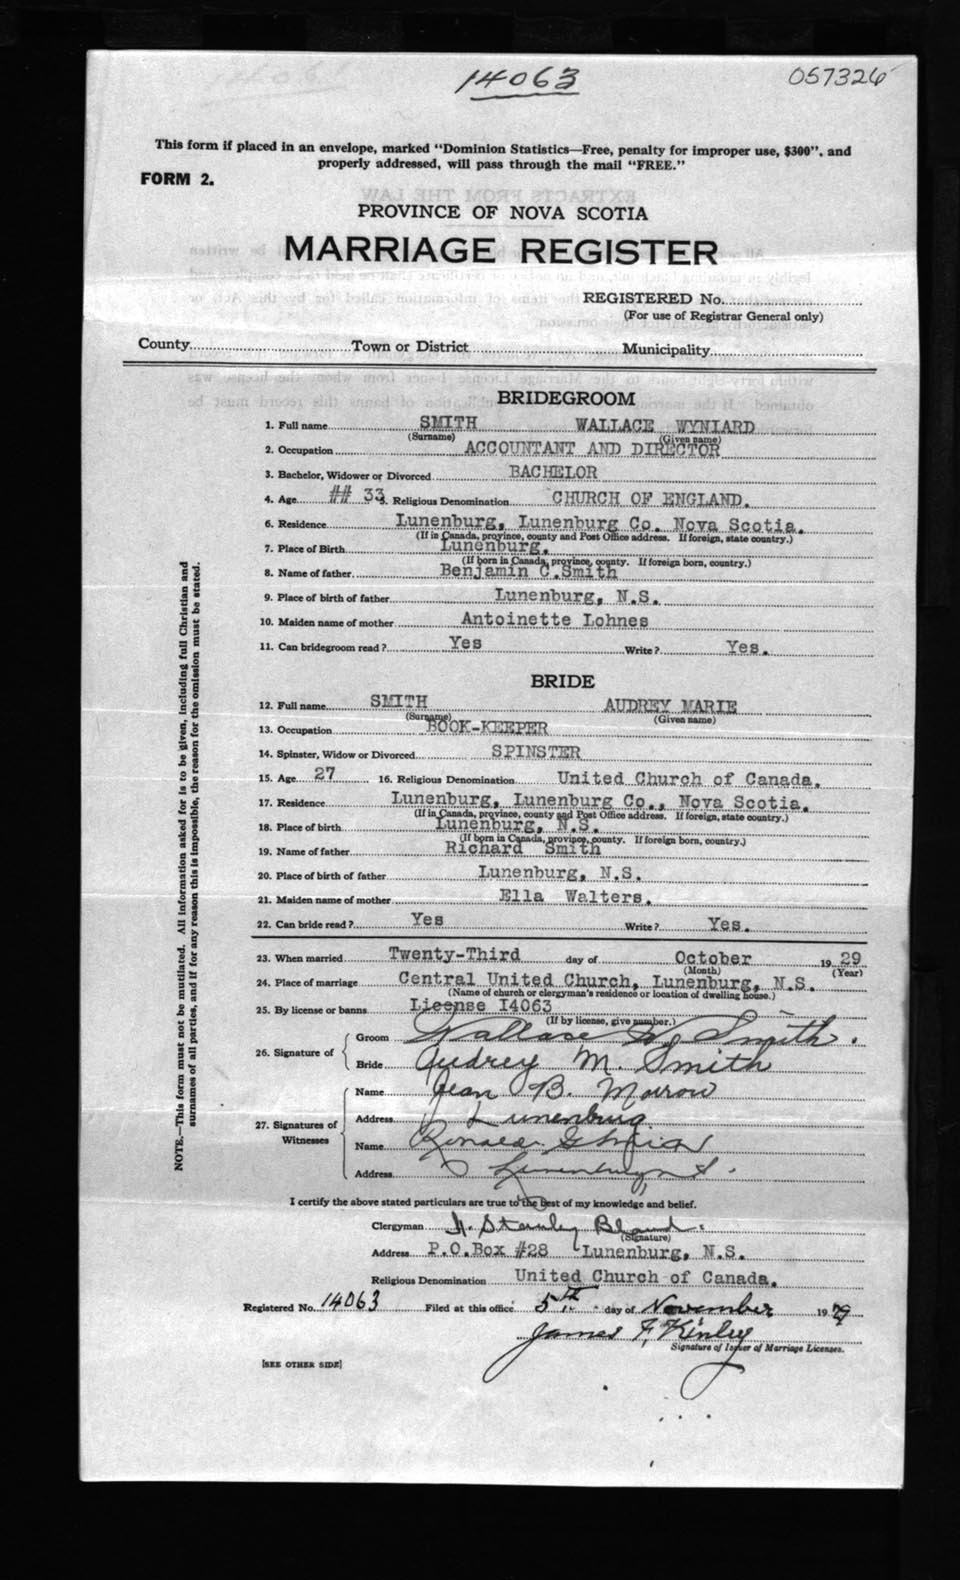 14063
057326
This form if placed in an envelope, marked "Dominion Statistics—Free, penalty for improper use, $300", and
properly addressed, will pass through the mail "FREE."
FORM 2.
PROVINCE OF NOVA SCOTIA
MARRIAGE REGISTER
REGISTERED No.
(For use of Registrar General only)
County Town or District Municipality
BRIDEGROOM
1. Full name SMITH WALLACE WYNIARD
(Surname) (Given name)
2. Occupation ACCOUNTANT AND DIRECTOR
3. Bachelor, Widower or Divorced BACHELOR
4. Age ## 33 5. Religious Denomination CHURCH OF ENGLAND.
6. Residence Lunenburg, Lunenburg Co. Nova Scotia.
(If in Canada, province, county and Post Office address. If foreign, state country.)
7. Place of Birth Lunenburg.
(If born in Canada, province, county. If foreign born, country.)
8. Name of father Benjamin C.Smith
9. Place of birth of father Lunenburg, N.S.
10. Maiden name of mother Antoinette Lohnes
11. Can bridegroom read? Yes Write? Yes.
BRIDE
12. Full name SMITH AUDREY MARIE
(Surname) (Given name)
13. Occupation BOOK-KEEPER
14. Spinster, Widow or Divorced SPINSTER
15. Age 27 16. Religious Denomination United Church of Canada.
17. Residence Lunenburg, Lunenburg Co., Nova Scotia.
(If in Canada, province, county and Post Office address. If foreign, state country.)
18. Place of birth Lunenburg, N.S.
(If born in Canada, province, county. If foreign born, country.)
19. Name of father Richard Smith
20. Place of birth of father Lunenburg, N.S.
21. Maiden name of mother Ella Walters.
22. Can bride read? Yes Write? Yes.
23. When married Twenty-Third day of October 1929
(Month) (Year)
24. Place of marriage Central United Church, Lunenburg, N.S.
(Name of church or clergyman's residence or location of dwelling house.)
25. By license or banns License I4063
(If by license, give number.)
26. Signature of
Groom Wallace W. Smith.
Bride Audrey M. Smith
27. Signatures of Witnesses
Name Jean B. Morrow
Address Lunenburg
Name Ronald
Address Lunenburg
I certify the above stated particulars are true to the best of my knowledge and belief.
Clergyman H. Stanley Bland.
(Signature)
Address P.O.Box #28 Lunenburg, N.S.
Religious Denomination United Church of Canada.
Registered No. 14063 Filed at this office 5th day of November 1929
James F. Kinley
Signature of Issuer of Marriage Licenses.
[SEE OTHER SIDE]
NOTE.—This form must not be mutilated. All information asked for is to be given, including full Christian and
surnames of all parties, and if for any reason this is impossible, the reason for the omission must be stated.